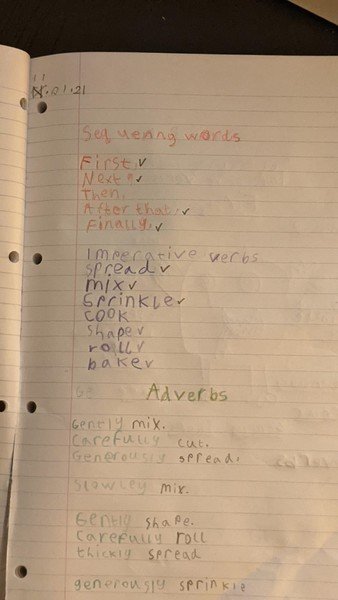 11.01.21
Sequencing words
First,
Next,
Then,
After that,
Finally,
Imperative verbs
spread
mix
Sprinkle
cook
shape
roll
bake
Adverbs
Gently mix.
Carefully cut.
Generously spread.
Slowley mix.
Gently shape.
Carefully roll
thickly spread
generously sprinkle